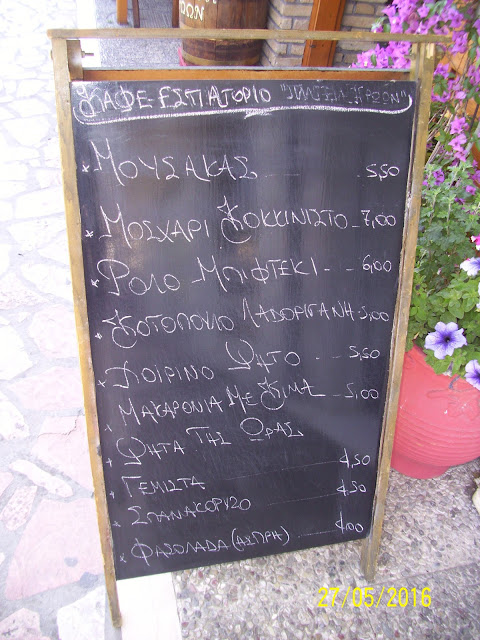 ΚΑΦΕ-ΕΣΤΙΑΤΟΡΙΟ
* ΜΟΥΣΑΚΑΣ 5,50
* ΜΟΣΧΑΡΙ ΚΟΚΚΙΝΙΣΤΟ - 7,00
* ΡΟΛΟ ΜΠΙΦΤΕΚΙ - - 6,00
* ΚΟΤΟΠΟΥΛΟ ΛΑΔΟΡΙΓΑΝΗ - 5,00
* ΧΟΙΡΙΝΟ ΨΗΤΟ - - - 5,50
* ΜΑΚΑΡΟΝΙΑ ΜΕ ΚΙΜΑ - 5,00
* ΨΗΤΑ ΤΗΣ ΩΡΑΣ
* ΓΕΜΙΣΤΑ 4,50
* ΣΠΑΝΑΚΟΡΥΖΟ 4,50
* ΦΑΣΟΛΑΔΑ (ΑΣΠΡΗ) 4,00
27/05/2016